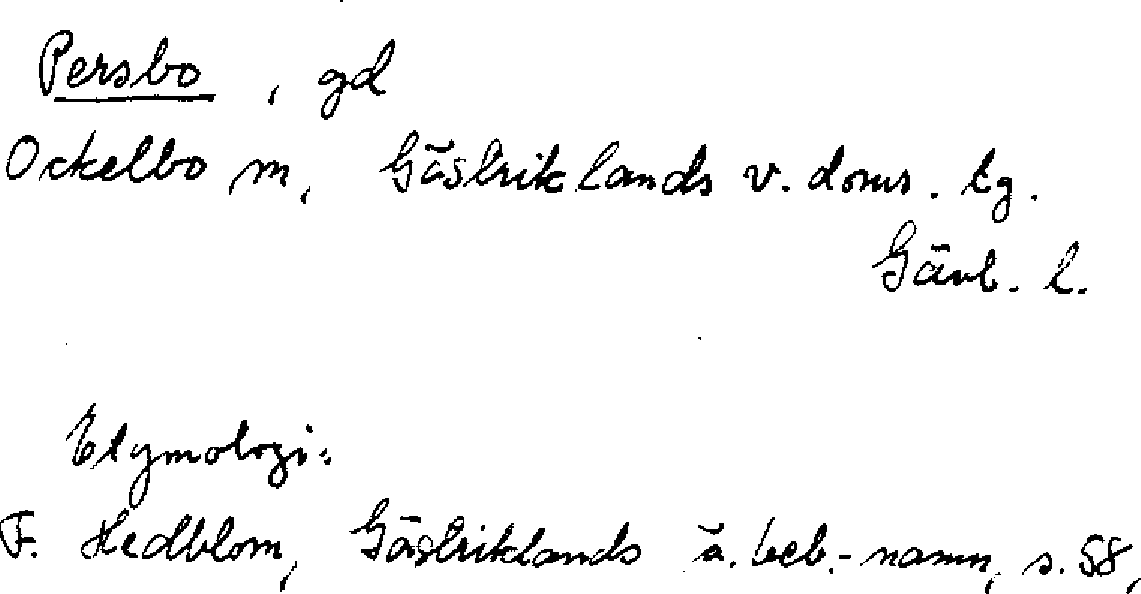 Persbo, gd
Ockelbo m, Gästriklands v. doms. tg.
Gävb. l.
Etymologi:
F. Hedblom, Gästriklands ä. beb.-namn, s. 58,